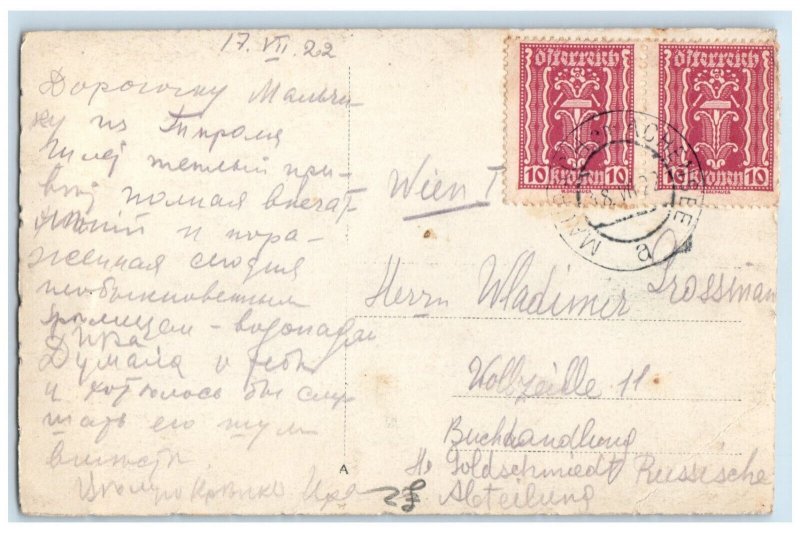 17. VII. 22
Дорогому Мальчи-
ку из Тироля
шлёт тёплый при-
вет полная впечат
лений и пора-
женная сегодня
необыкновенным
зрелищем - водопадом
Думала о тебе
и хотелось бы слу
шать его шум
вместе.
Целую крепко Ира
Österreich
10 Kronen 10
Österreich
10 Kronen 10
MAURACH ACHENSEE
a
Wien I
Herrn Wladimir Grossman
Wollzeille 11
Buchhandlung
Goldschmiedt Russische
Abteilung
A